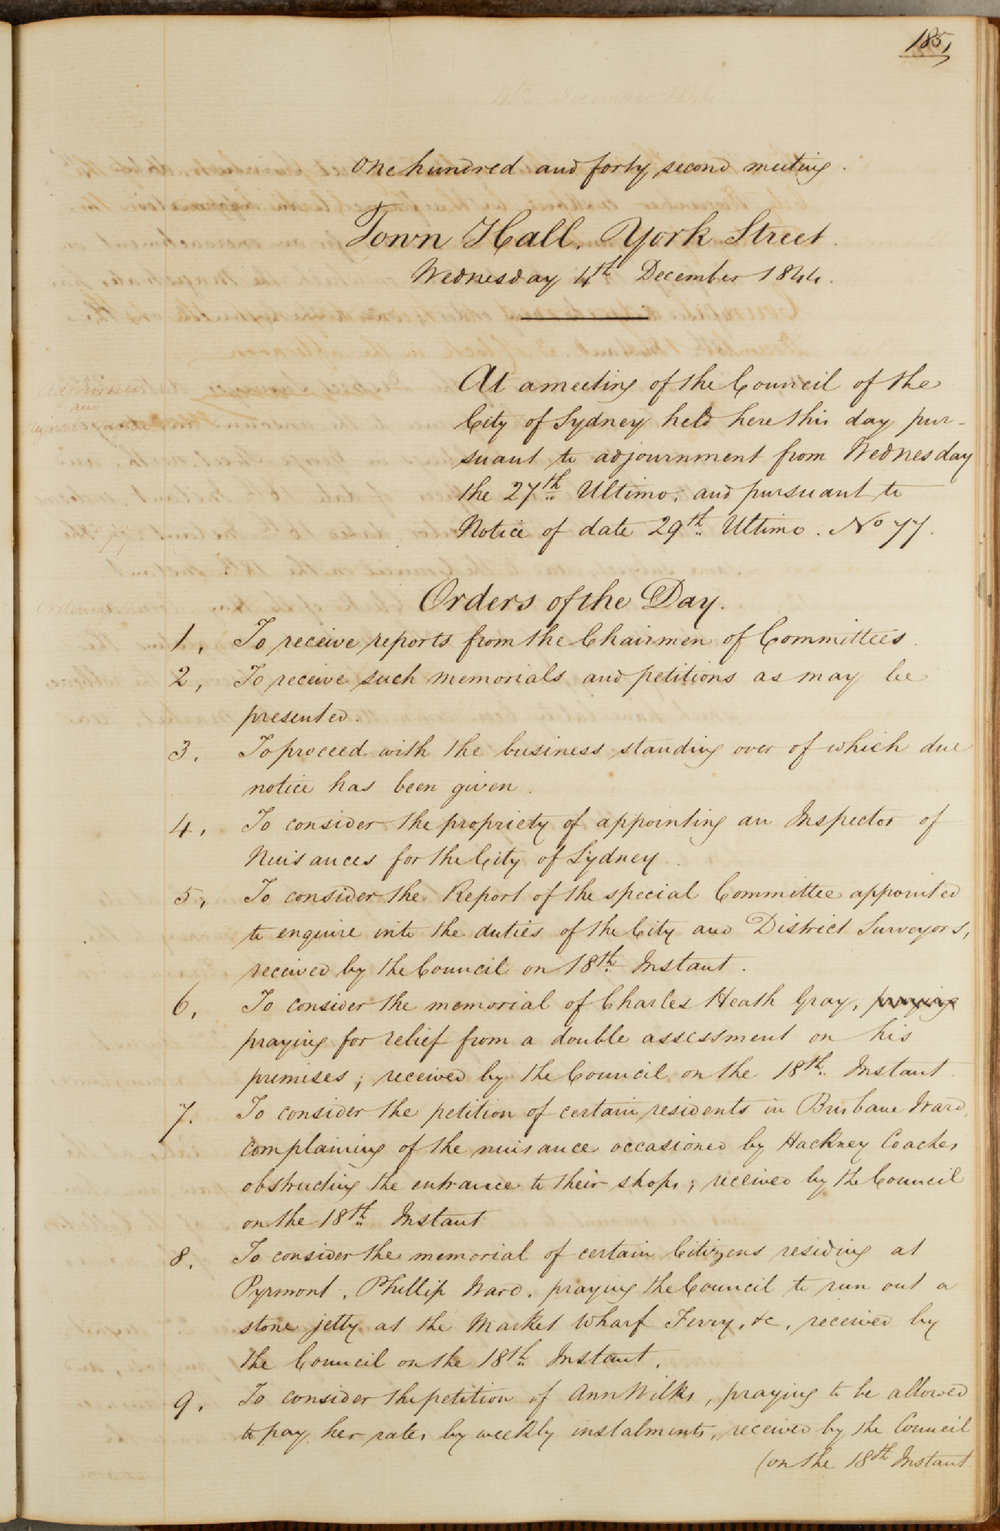 185,
One hundred and forty second meeting.
Town Hall, York Street.
Wednesday 4th December 1844.
At a meeting of the Council of the
City of Sydney held here this day pur-
suant to adjournment from Wednesday
the 27th Ultimo, and pursuant to
Notice of date 29th Ultimo. No 77.
Orders of the Day.
1, To receive reports from the Chairmen of Committees.
2, To receive such memorials and petitions as may be
presented.
3. To proceed with the business standing over of which due
notice has been given.
4, To consider the propriety of appointing an Inspector of
Nuisances for the City of Sydney.
5, To consider the Report of the special Committee appointed
to enquire into the duties of the City and District Surveyors,
received by the Council on 18th Instant.
6, To consider the memorial of Charles Heath Gray, praying
praying for relief from a double assessment on his
premises; received by the Council on the 18th Instant.
7. To consider the petition of certain residents in Brisbane Ward
complaining of the nuisance occasioned by Hackney Coaches
obstructing the entrance to their shops; received by the Council
on the 18th Instant
8. To consider the memorial of certain Citizens residing at
Pyrmont, Phillip Ward, praying the Council to run out a
stone jetty at the Market Wharf Ferry, &c, received by
the Council on the 18th Instant,
9. To consider the petition of Ann Wilks, praying to be allowed
to pay her rates by weekly instalments, received by the Council
(on the 18th Instant.